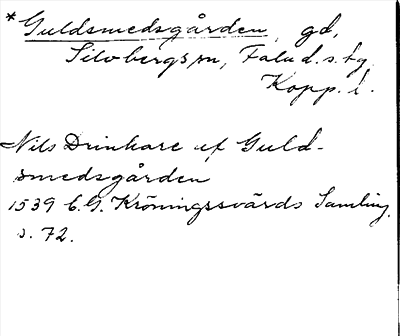 *Guldsmedsgården, gd,
Silvbergs sn, Falu d.s. tg
Kopp. l.
Nils Drinkare uf Guld-
smedsgården
1539 C.G. Kröningssvärds Samling,
s. 72.